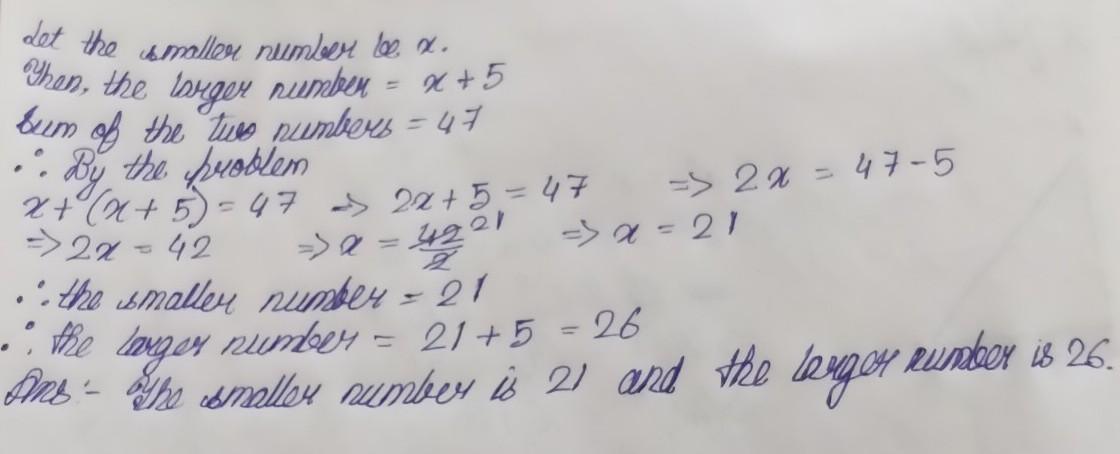 Let the smaller number be x.
Then, the larger number = x + 5
Sum of the two numbers = 47
∴ By the problem
x + (x + 5) = 47 => 2x + 5 = 47 => 2x = 47 - 5
=> 2x = 42 => x = 42/2 21 => x = 21
∴ the smaller number = 21
∴ the larger number = 21 + 5 = 26
Ans :- The smaller number is 21 and the larger number is 26.